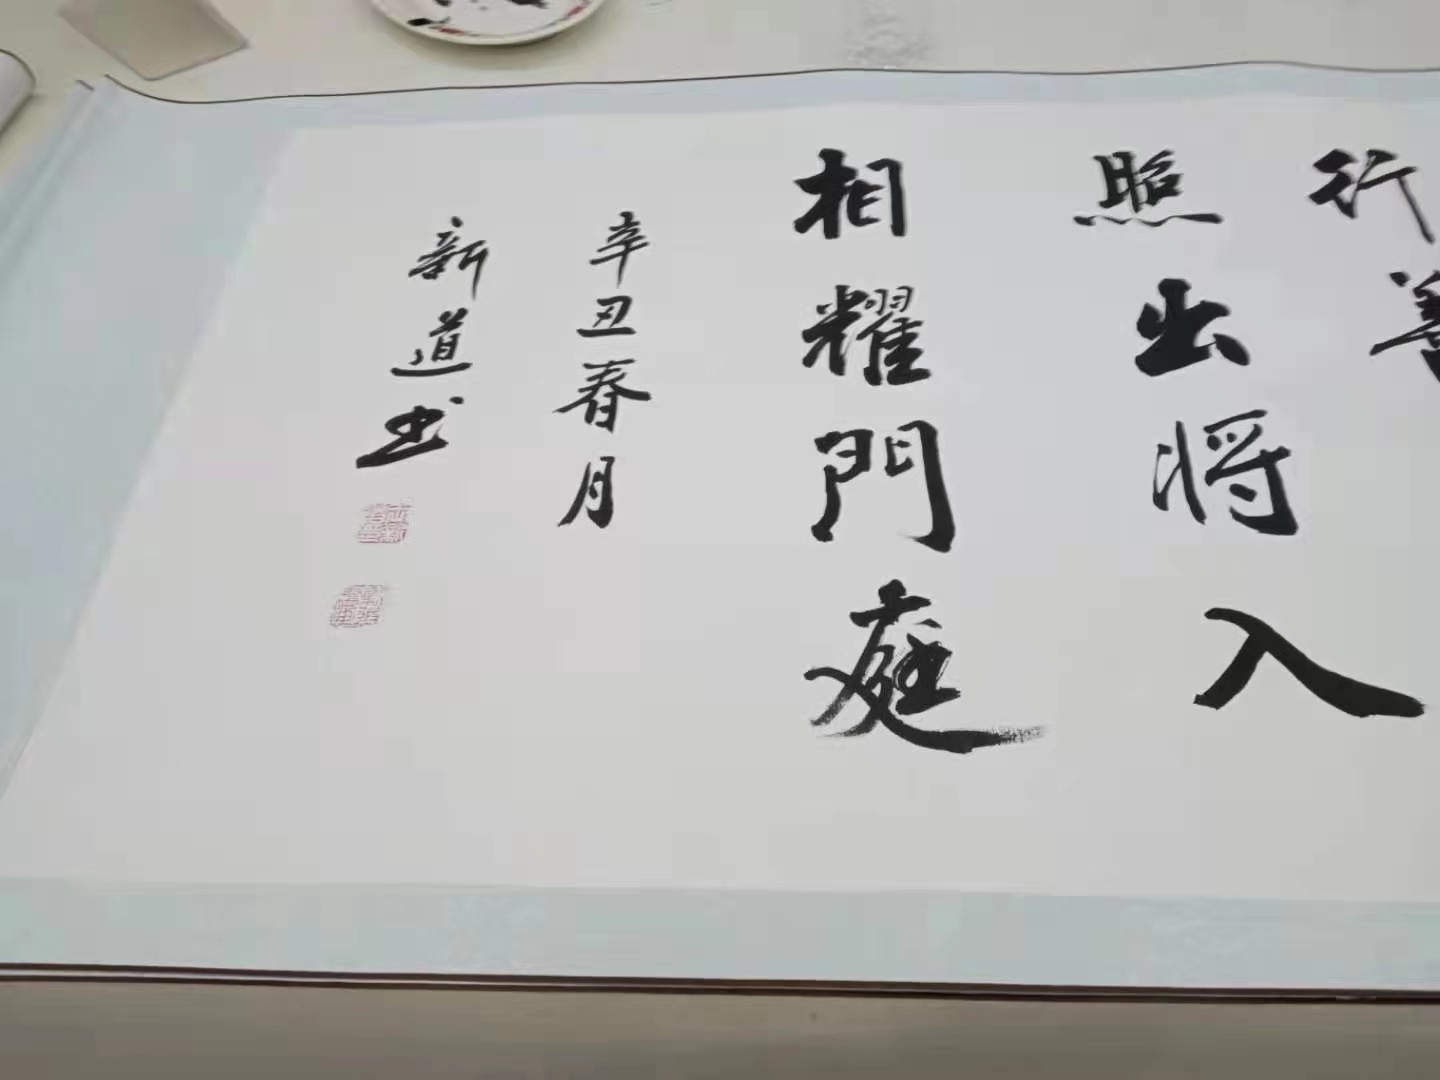 行善
照出将入
相耀門庭
辛丑春月
新道书